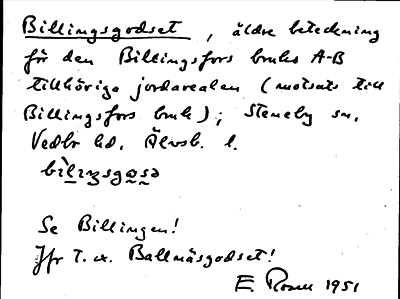 Billingsgodset, äldre beteckning
för den Billingsfors bruks A-B
tillhöriga jordarealen (motsats till
Billingsfors bruk); Steneby sn,
Vedbo hd. Älvsb. l.
Se Billingen!
Jfr t. ex. Ballnäsgodset!
E Rosell 1951